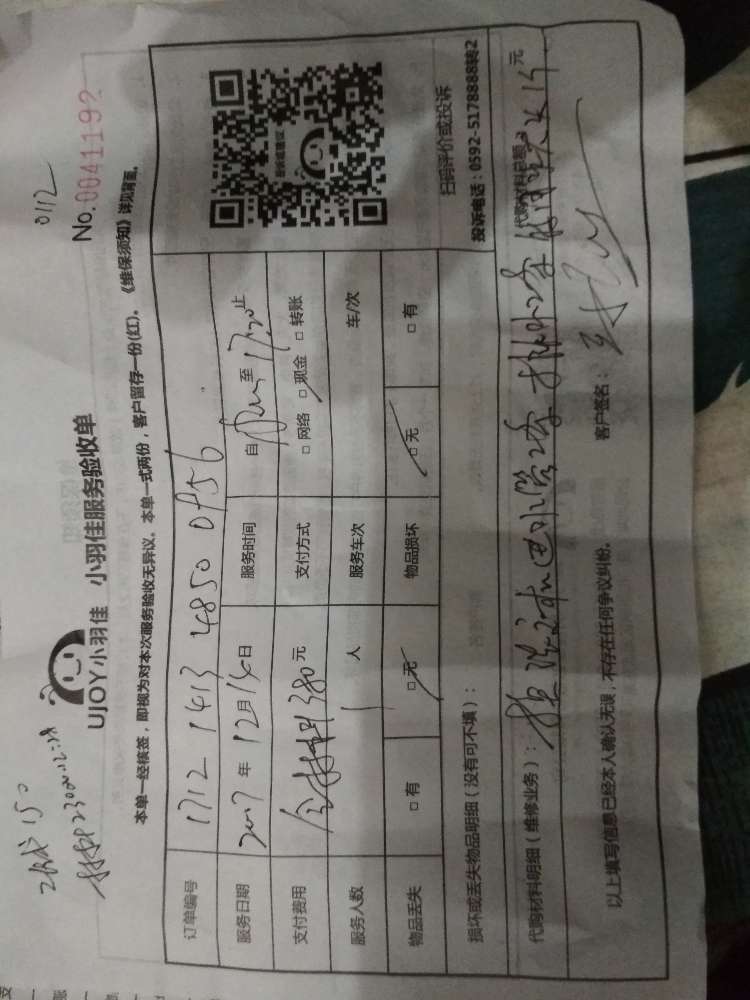 0112
UJOY小羽佳 小羽佳服务验收单
No.0041192
本单一经核签，即视为对本次服务验收无异议。本单一式两份，客户留存一份(红)。《维保须知》详见背面。
订单编号 1712 1413 4850 0956
服务日期 2017 年 12月14日 服务时间 自 至 17:20 止
支付费用 含材料380元 支付方式 □ 网络 □ 现金 □ 转账
服务人数 1 人 服务车次 车/次
物品丢失 □ 有 □ 无 物品损坏 □ 无 □ 有
损坏或丢失物品明细（没有可不填）：
扫码评价或投诉
投诉电话：0592-5178888转2
代购材料明细（维修业务）：
代购材料总额： 元
以上填写信息已经本人确认无误，不存在任何争议纠纷。
客户签名：